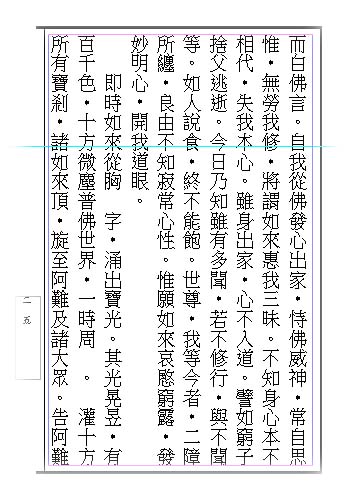 而白佛言。自我從佛發心出家・恃佛威神・常自思
惟・無勞我修・將謂如來惠我三昧。不知身心本不
相代・失我本心。雖身出家・心不入道。譬如窮子
捨父逃逝。今日乃知雖有多聞・若不修行・與不聞
等。如人說食・終不能飽。世尊・我等今者・二障
所纏・良由不知寂常心性。惟願如來哀愍窮露・發
妙明心・開我道眼。
即時如來從胸　字・涌出寶光。其光晃昱・有
百千色・十方微塵普佛世界・一時周　。灌十方
所有寶剎・諸如來頂・旋至阿難及諸大眾。告阿難
二五